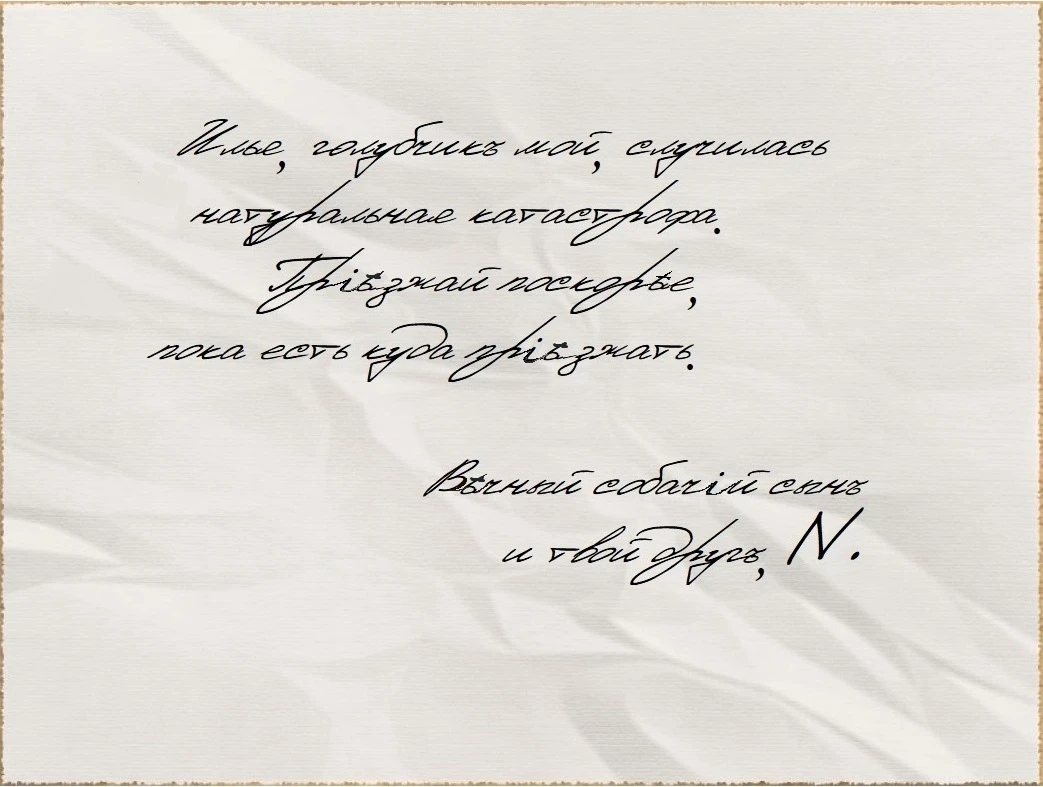 Илье, голубчикъ мой, случилась
натуральная катастрофа.
Пріѣзжай поскорѣе,
пока есть куда пріѣзжать.
Вѣчный собачій сынъ
и твой другъ, N.